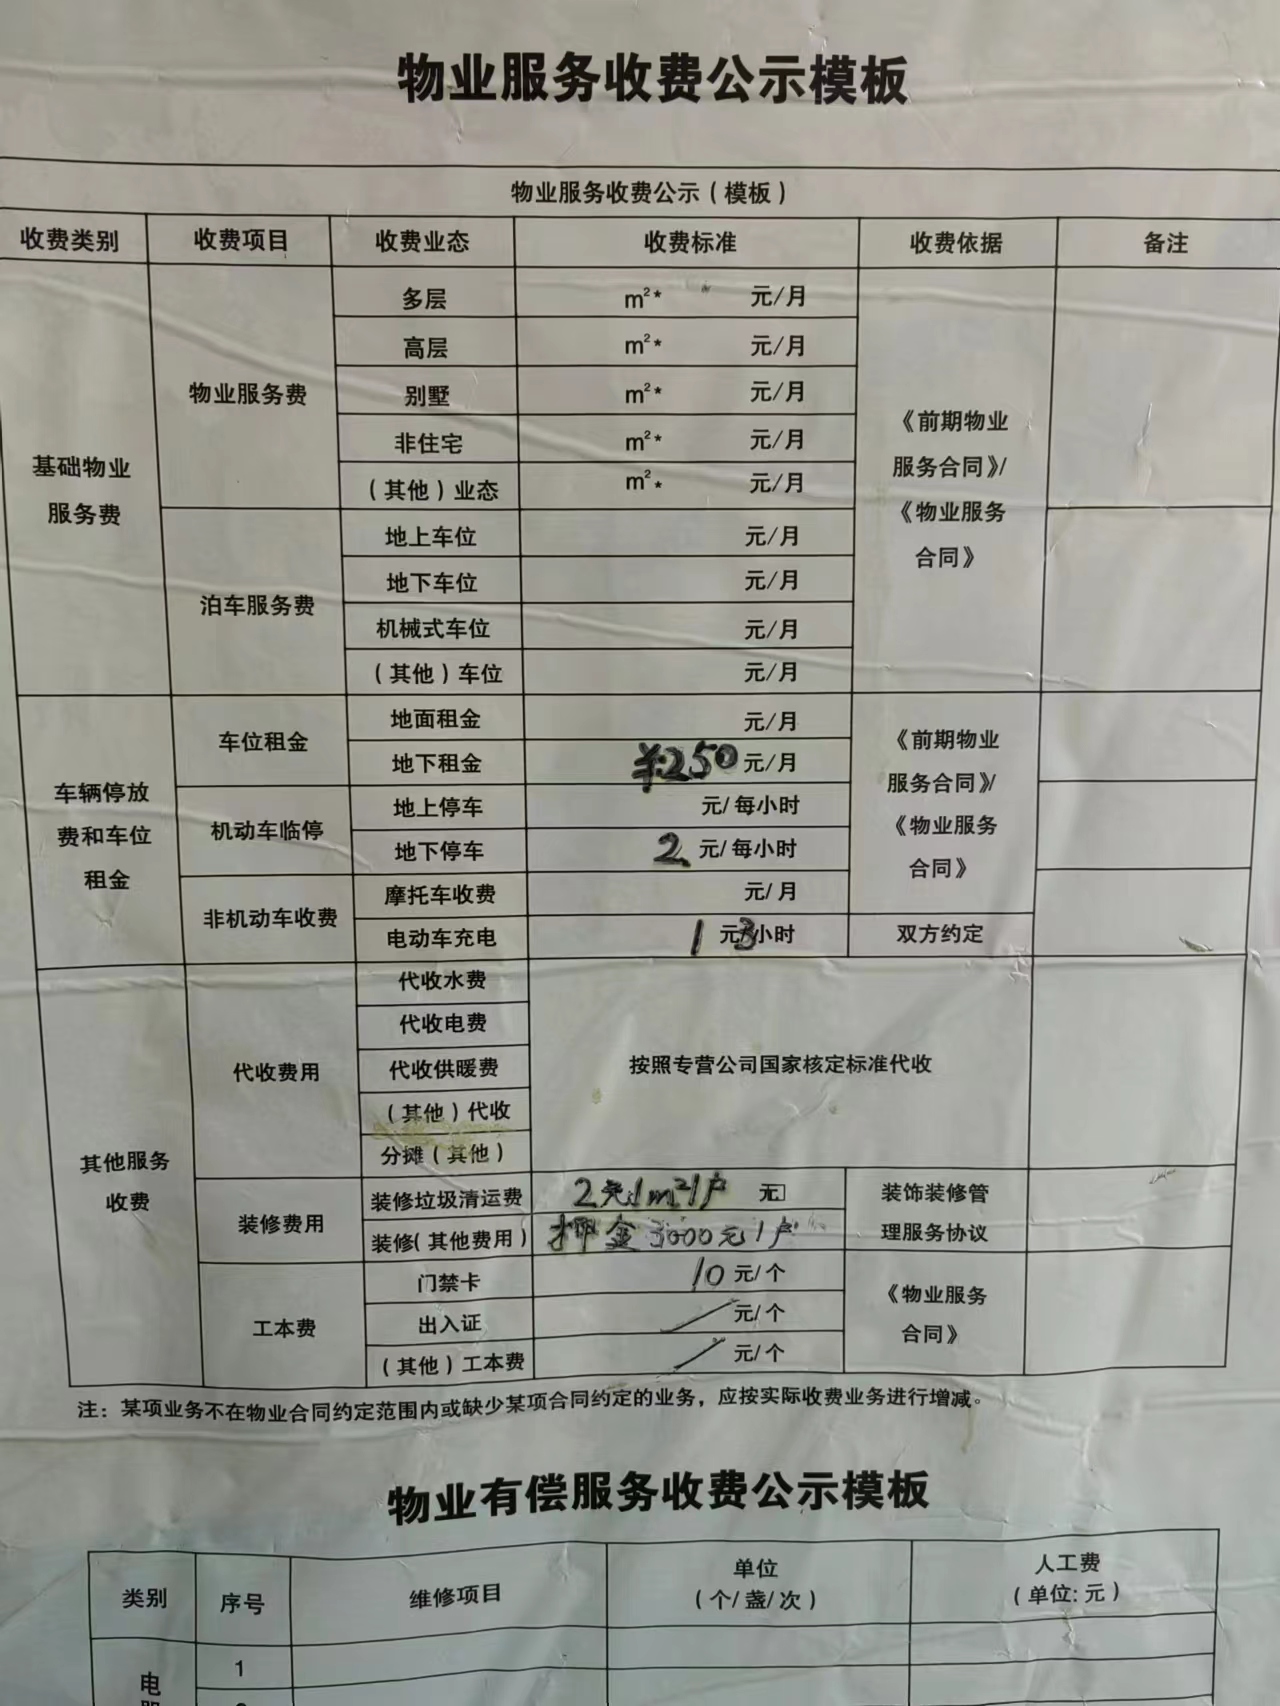 物业服务收费公示模板
物业服务收费公示（模板）
收费类别 收费项目 收费业态 收费标准 收费依据 备注
基础物业
服务费
物业服务费
多层 m²* 元/月
高层 m²* 元/月
别墅 m²* 元/月
非住宅 m²* 元/月
（其他）业态 m²* 元/月
《前期物业
服务合同》/
《物业服务
合同》
泊车服务费
地上车位 元/月
地下车位 元/月
机械式车位 元/月
（其他）车位 元/月
车辆停放
费和车位
租金
车位租金
地面租金 元/月
地下租金 ¥250元/月
机动车临停
地上停车 元/每小时
地下停车 2元/每小时
《前期物业
服务合同》/
《物业服务
合同》
非机动车收费
摩托车收费 元/月
电动车充电 1元/3小时 双方约定
其他服务
收费
代收费用
代收水费
代收电费
代收供暖费
（其他）代收
分摊（其他）
按照专营公司国家核定标准代收
装修费用
装修垃圾清运费 2元/m²/户 元
装修（其他费用） 押金 000元/户
装饰装修管
理服务协议
工本费
门禁卡 10元/个
出入证 元/个
（其他）工本费 元/个
《物业服务
合同》
注：某项业务不在物业合同约定范围内或缺少某项合同约定的业务，应按实际收费业务进行增减。
物业有偿服务收费公示模板
类别 序号 维修项目 单位
（个/盏/次） 人工费
（单位:元）
电
1